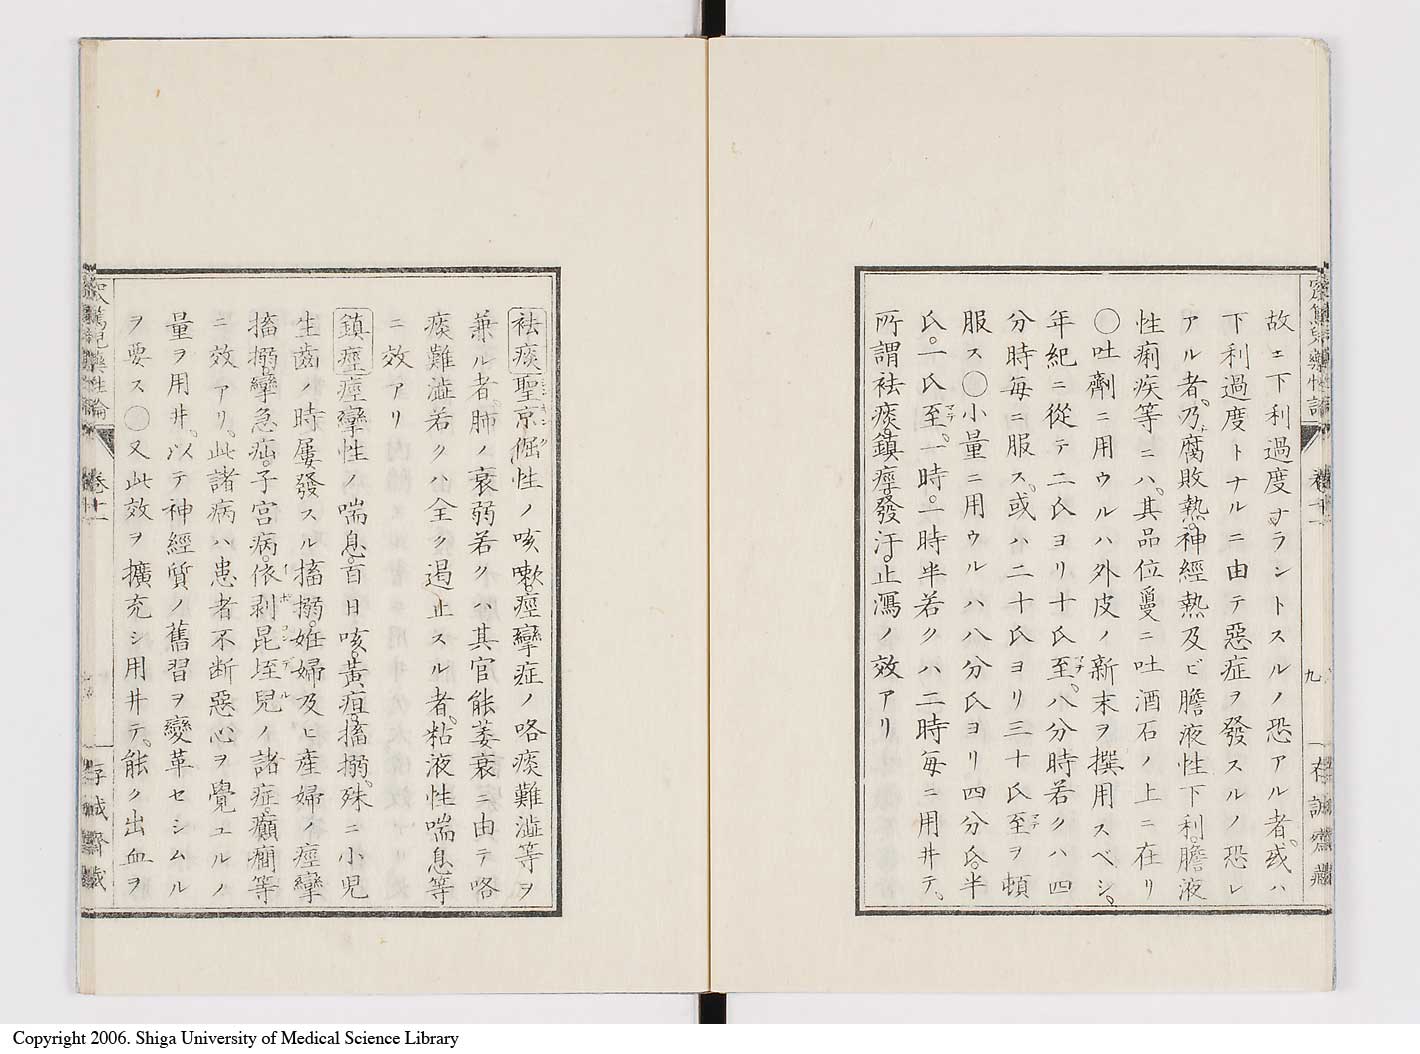 故ニ下利過度ナラントスルノ恐アル者。或ハ
下利過度トナルニ由テ惡症ヲ發スルノ恐レ
アル者。乃腐敗熱。神經熱及ビ膽液性下利。膽液
性痢疾等ニハ。其品位曼ニ吐酒石ノ上ニ在リ
〇吐劑ニ用ウルハ外皮ノ新末ヲ撰用スベシ。
年紀ニ從テ二氏ヨリ十氏至マテ。八分時若クハ四
分時毎ニ服ス。或ハ二十氏ヨリ三十氏至マテヲ頓
服ス〇小量ニ用ウルハ八分氏ヨリ四分氏。半
氏。一氏至マテ。一時。一時半若クハ二時毎ニ用井テ。
所謂袪痰。鎮痙。發汗。止瀉ノ效アリ
九
存誠齋藏
袪痰聖京倔性ノ咳嗽。痙攣症ノ咯痰難澁等ヲ
兼ル者。肺ノ衰弱若クハ其官能萎衰ニ由テ咯
痰難澁若クハ全ク遏止スル者。粘液性喘息等
ニ效アリ
鎮痙痙攣性ノ喘息。百日咳。黃疸。搐搦。殊ニ小児
生齒ノ時屢發スル搐搦。姙婦及ヒ產婦ノ痙攣
搐搦。攣急疝。子宮病。依剥昆垤兒イポコンデルノ諸症。癲癇等
ニ效アリ。此諸病ハ患者不断惡心ヲ覺ユルノ
量ヲ用井。以テ神經質ノ舊習ヲ變革セシムル
ヲ要ス〇又此效ヲ擴充シ用井テ。能ク出血ヲ
窊篤児藥性論
卷十一
存誠齋藏
Copyright 2006. Shiga University of Medical Science Library